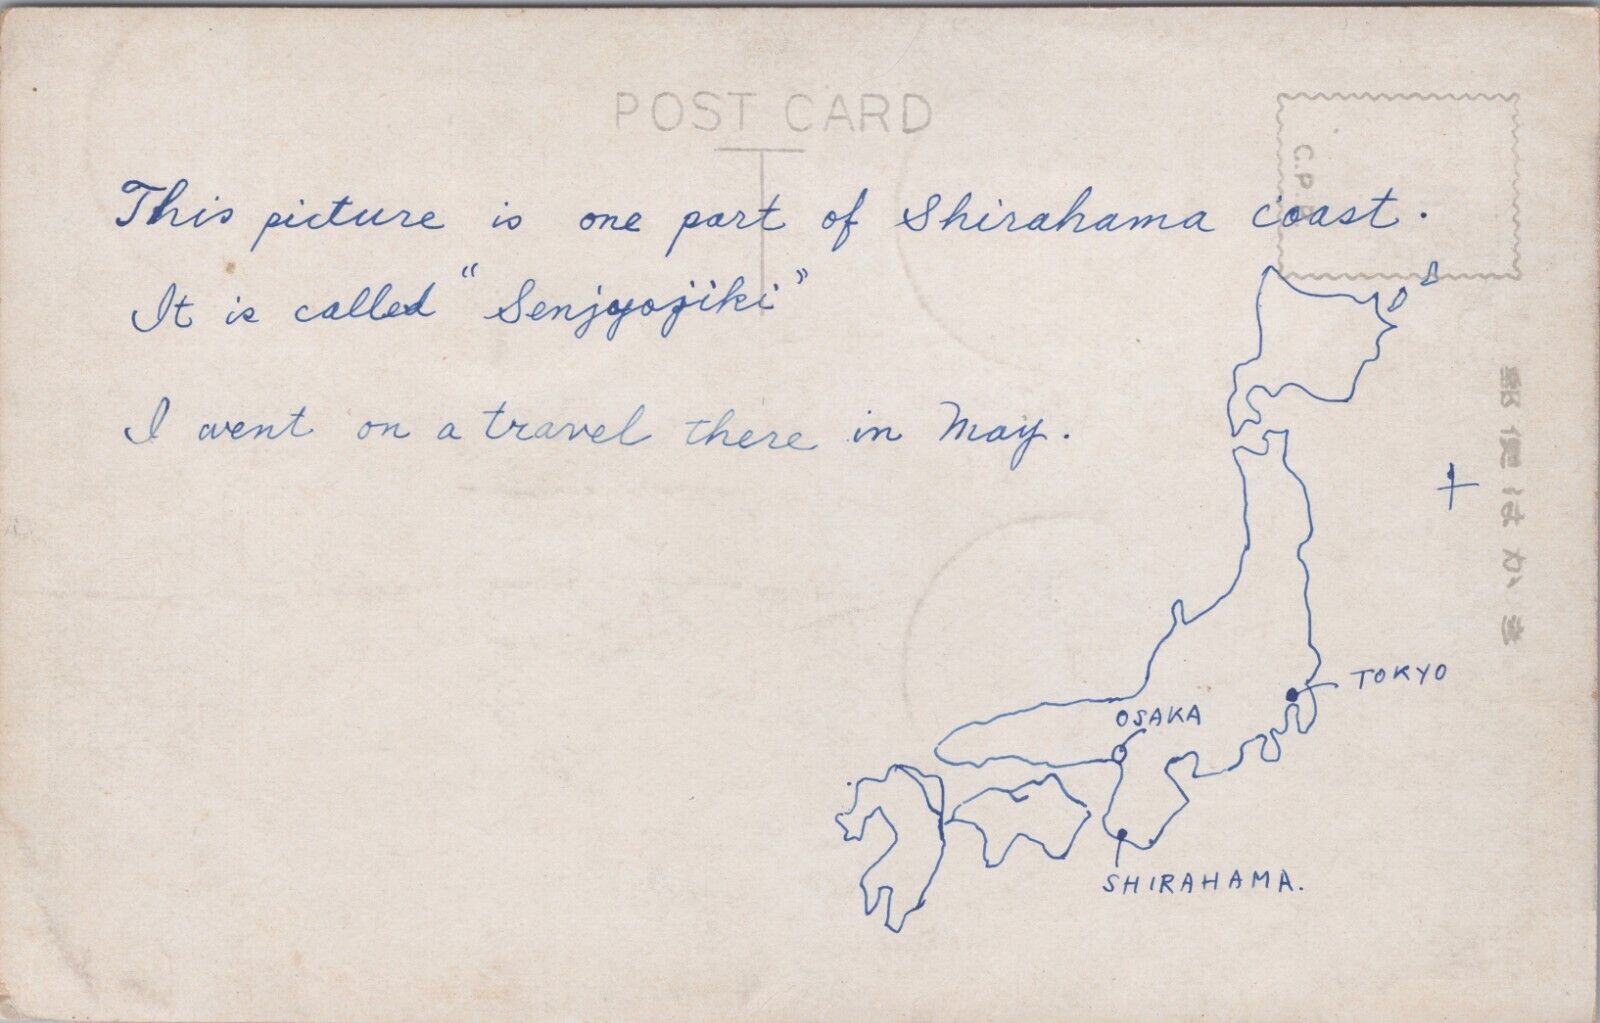 POST CARD
C.P.
This picture is one part of Shirahama coast.
It is called "Senjyojiki"
I went on a travel there in May.
TOKYO
OSAKA
SHIRAHAMA.
郵便はがき